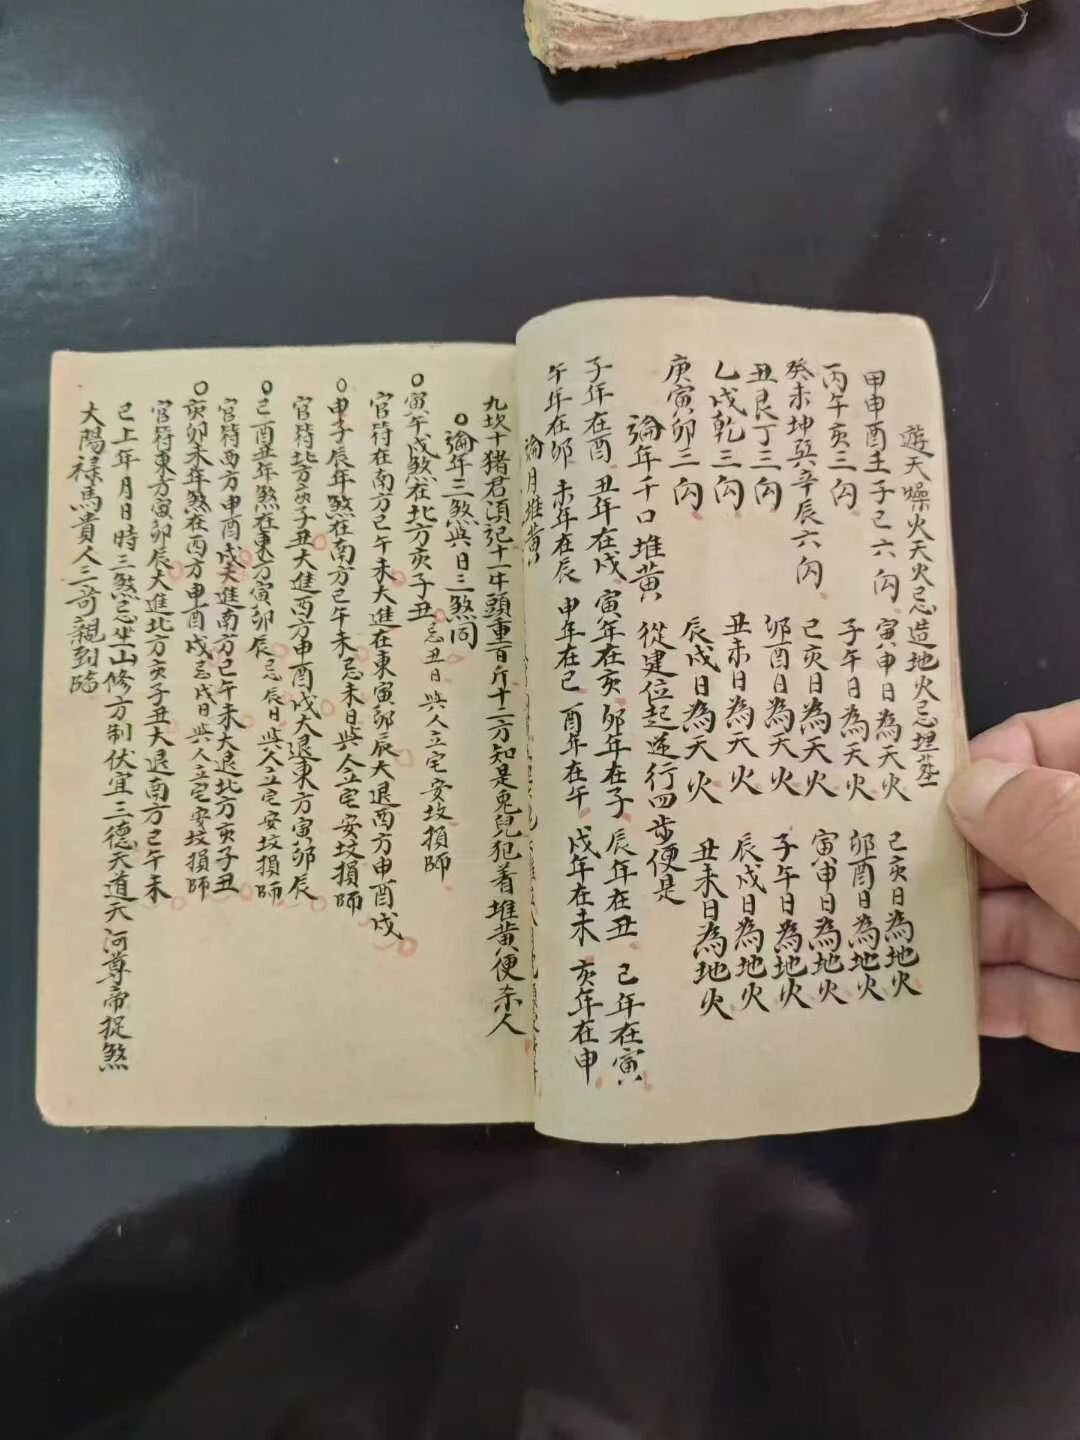 遊天燥火天火忌造地火忌埋葬
甲申酉壬子己六閃 寅申日為天火 己亥日為地火
丙午亥三閃 子午日為天火 卯酉日為地火
癸未坤巽辛辰六閃 己亥日為天火 寅申日為地火
丑艮丁三閃 卯酉日為天火 子午日為地火
乙戌乾三閃 丑未日為天火 辰戌日為地火
庚寅卯三閃 辰戌日為天火 丑未日為地火
論年千口堆黃 從建位起逆行四步便是
子年在酉 丑年在戌 寅年在亥 卯年在子 辰年在丑 己年在寅
午年在卯 未年在辰 申年在己 酉年在午 戌年在未 亥年在申
論月堆黃
九坎十猪君須記十一牛頭重百斤十二方知是兎兒犯着堆黃便杀人
○論年三煞與日三煞同
○寅午戌煞在北方亥子丑 忌丑日與人立宅安坟損師
官符在南方己午未大進在東寅卯辰大退西方申酉戌
○申子辰年煞在南方己午未忌未日與人立宅安坟損師
官符北方亥子丑大進西方申酉戌大退東方寅卯辰
○己酉丑年煞在東方寅卯辰忌辰日與人立宅安坟損師
官符西方申酉戌大進南方己午未大退北方亥子丑
○亥卯未年煞在西方申酉戌忌戌日與人立宅安坟損師
官符東方寅卯辰大進北方亥子丑大退南方己午未
已上年月日時三煞忌坐山修方制伏宜三德天道天河尊帝捉煞
太陽禄馬貴人三奇親到臨